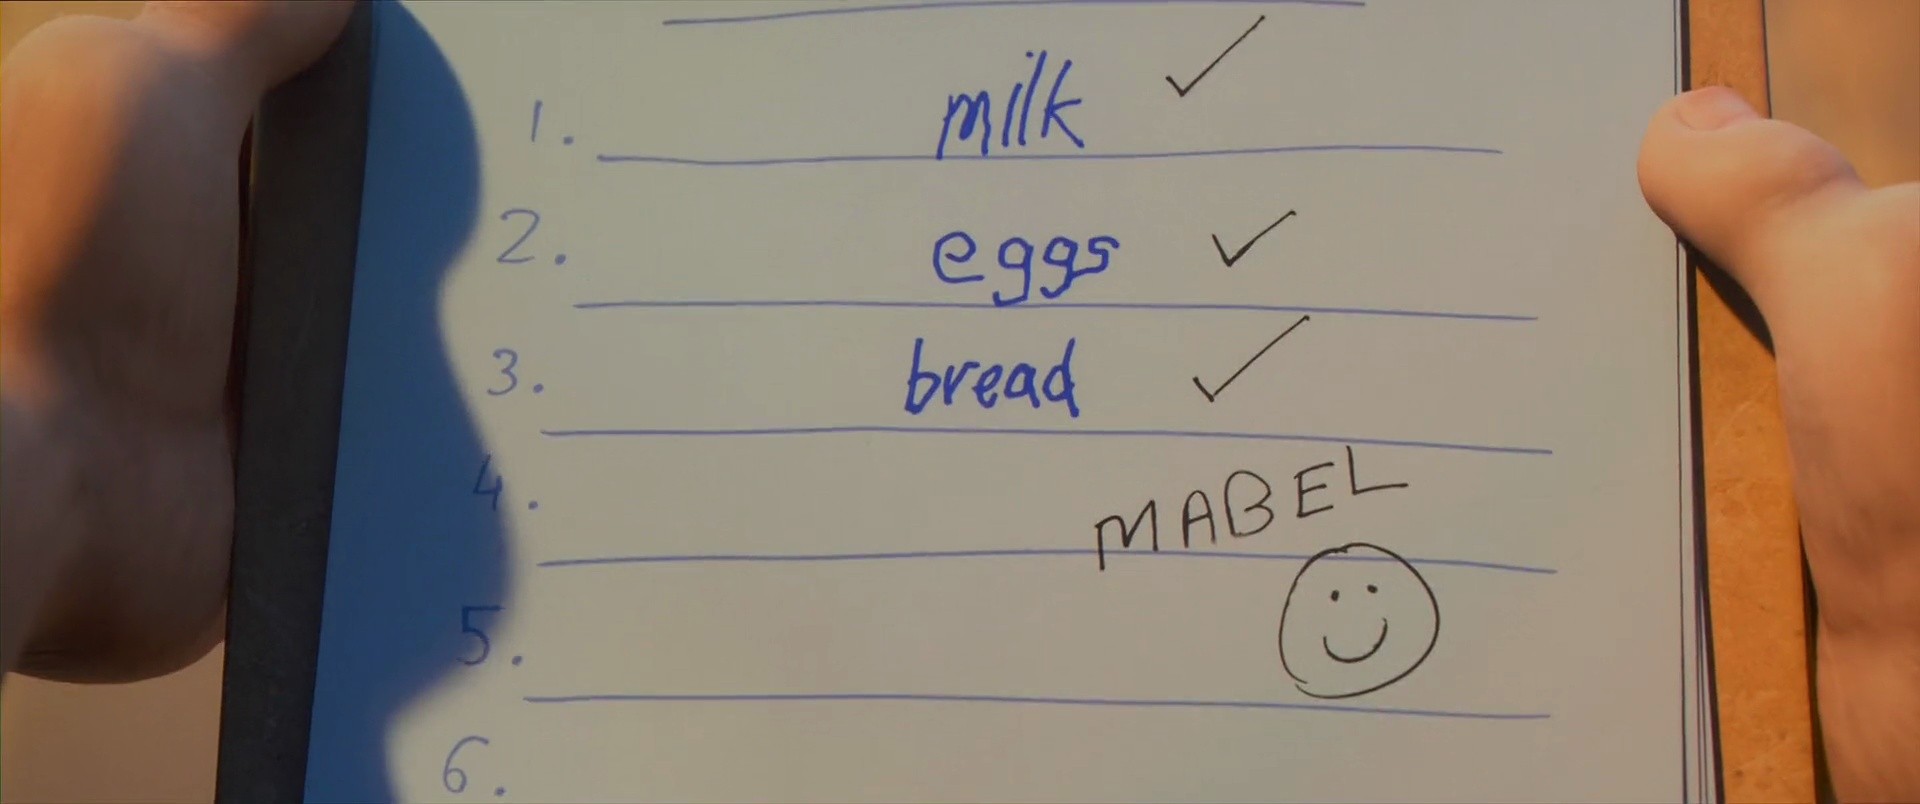 1. milk ✓
2. eggs ✓
3. bread ✓
4. MABEL
5.
6.